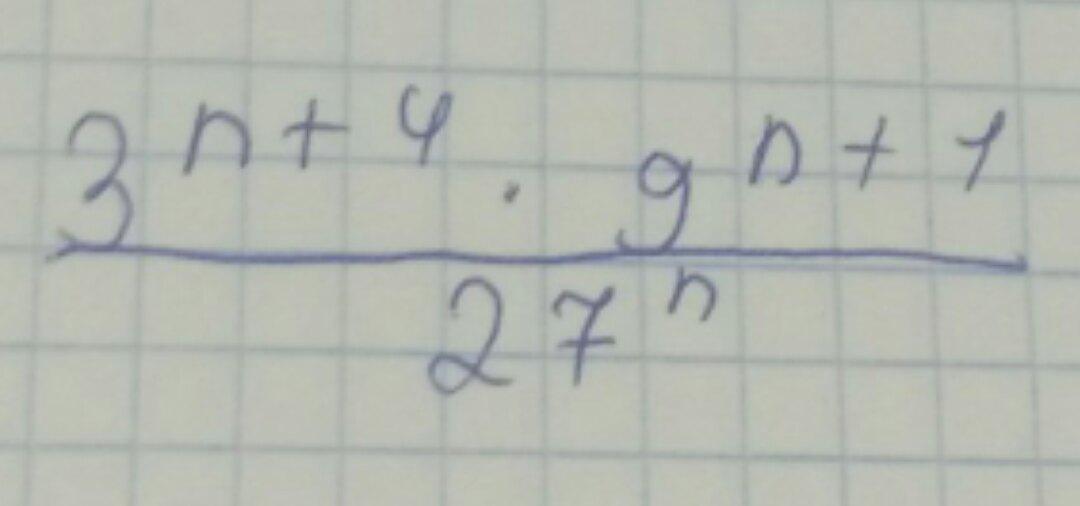 3^{n+4} · 9^{n+1}
27^n